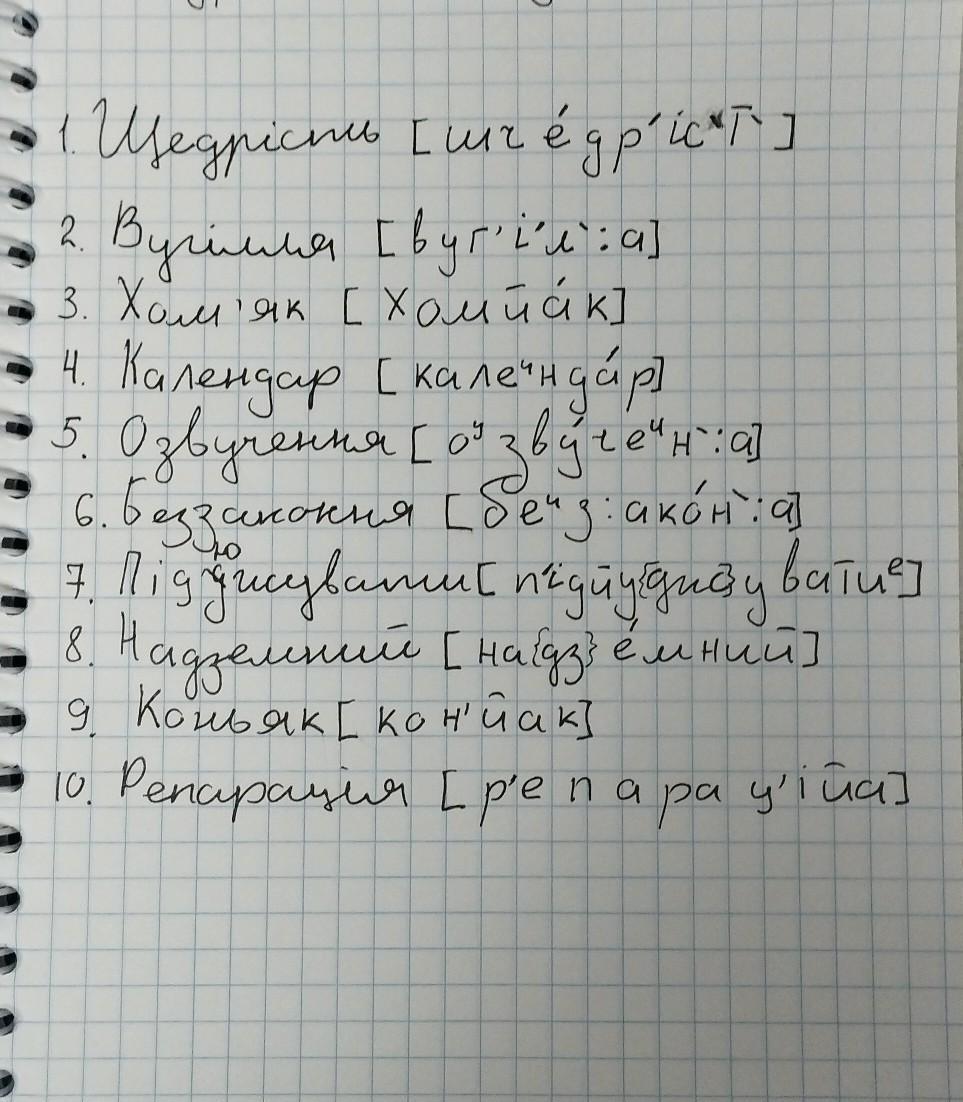 1. Щедрість [шче́др'іс'т']
2. Вугілля [вуг'і́л':а]
3. Хом'як [хомйа́к]
4. Календар [калеᶦнда́р]
5. Озвучення [оʸзву́чеᶦн':а]
6. Беззаконня [беᶦз:ако́н':а]
7. сувати [п'ідйу{дж}уватиᵉ]
8. Надземний [на{дз}е́мний]
9. Коньяк [кон'йак]
10. Репарація [р'епарац'ійа]